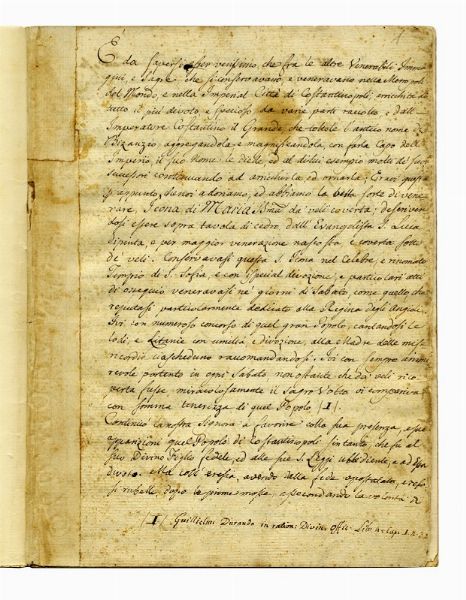 1
È da sapersi per verissimo che fra le altre Venerabili Immagini, e Sagre che si conservavano, e veneravano nella Metropoli
del Mondo, e nella Imperial Città di Costantinopoli, arrichita da
tutto il più devoto, e specioso da varie parti raccolto, e dall'
Imperatore Costantino il Grande, che toltole l'antico nome di
Bizanzio, aggregandola e magnificandola, con farla Capo dell'
Imperio, il suo Nome le diede, ed al di lui esempio molti de' suoi
successori continuando ad arrichirla ed ornarla; Eravi questa
appunto,
rare, Icona di MARIA SSma da' veli coverta; descriven
dosi essere sopra tavola di cedro, dall'Evangelista S. Luca
dipinta, e per maggior venerazione nascosta e coverta sotto
de' veli. Conservavasi questa S. Icona nel Celebre, e rinomato
Tempio di S. Sofia, e con special divozione, e particolari atti
di ossequio veneravasi ne' giorni di Sabato, come quello che
reputasi particolarmente dedicato alla Regina degli Angioli.
Ivi con numeroso concorso di quel gran Popolo, cantandosi le
lodi, e Litanie con umiltà e divozione, alla Madre delle mise
ricordie ciascheduno raccomandandosi. Ivi con sempre ammi
revole portento in ogni Sabato, non ostante che da' veli rico
verta fusse, miracolosamente il Sagro Volto si
con somma tenerezza di quel Popolo (1).
Continuò la nostra Signora a favorire colla sua presenza, e sue
apparizioni quel Popolo di Costantinopoli sintanto che fu al
suo Divino Figlio fedele, ed alle sue S. Leggi ubbidiente, e a Essa
divoto. Ma colà eresia, avendo dalla fede apostatato, e resosi rubelle, dopo la prima mossa, e secondando la volontà di
(1) Guillielm: Durando in ration: Divin: Offi: Lib: 4. Cap: 1. n. 31